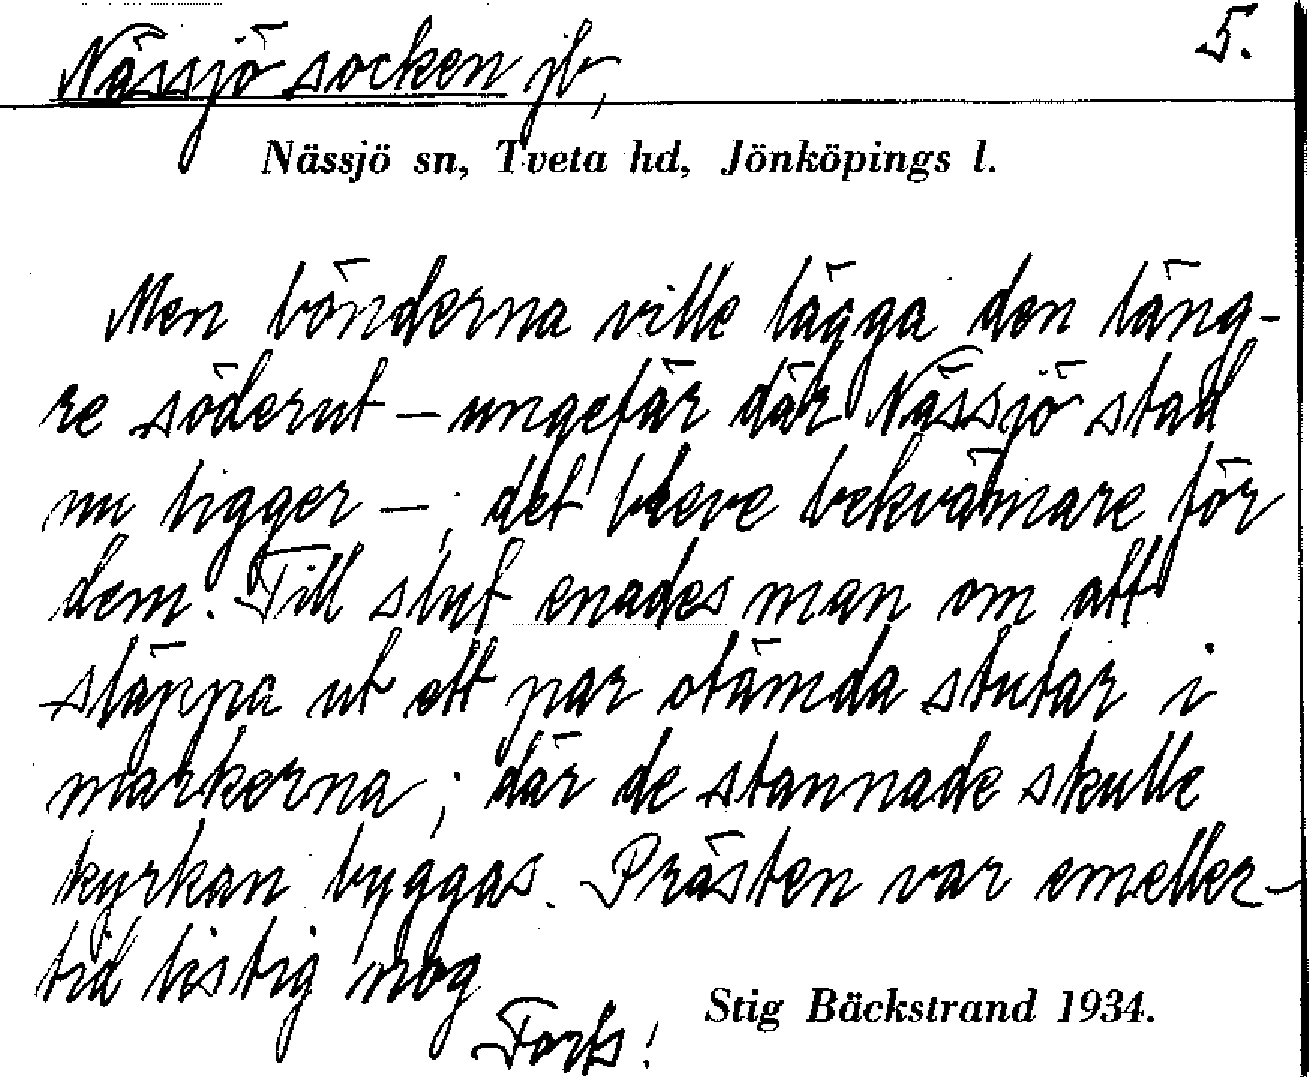 Nässjö socken jb, 5.
Nässjö sn, Tveta hd, Jönköpings l.
Men bönderna ville lägga den läng-
re söderut – ungefär där Nässjö stad
nu ligger –; det bleve bekvämare för
dem. Till slut enades man om att
släppa ut ett par otämda stutar i
markerna; där de stannade skulle
kyrkan byggas. Prästen var emeller-
tid listig nog
Forts!
Stig Bäckstrand 1934.